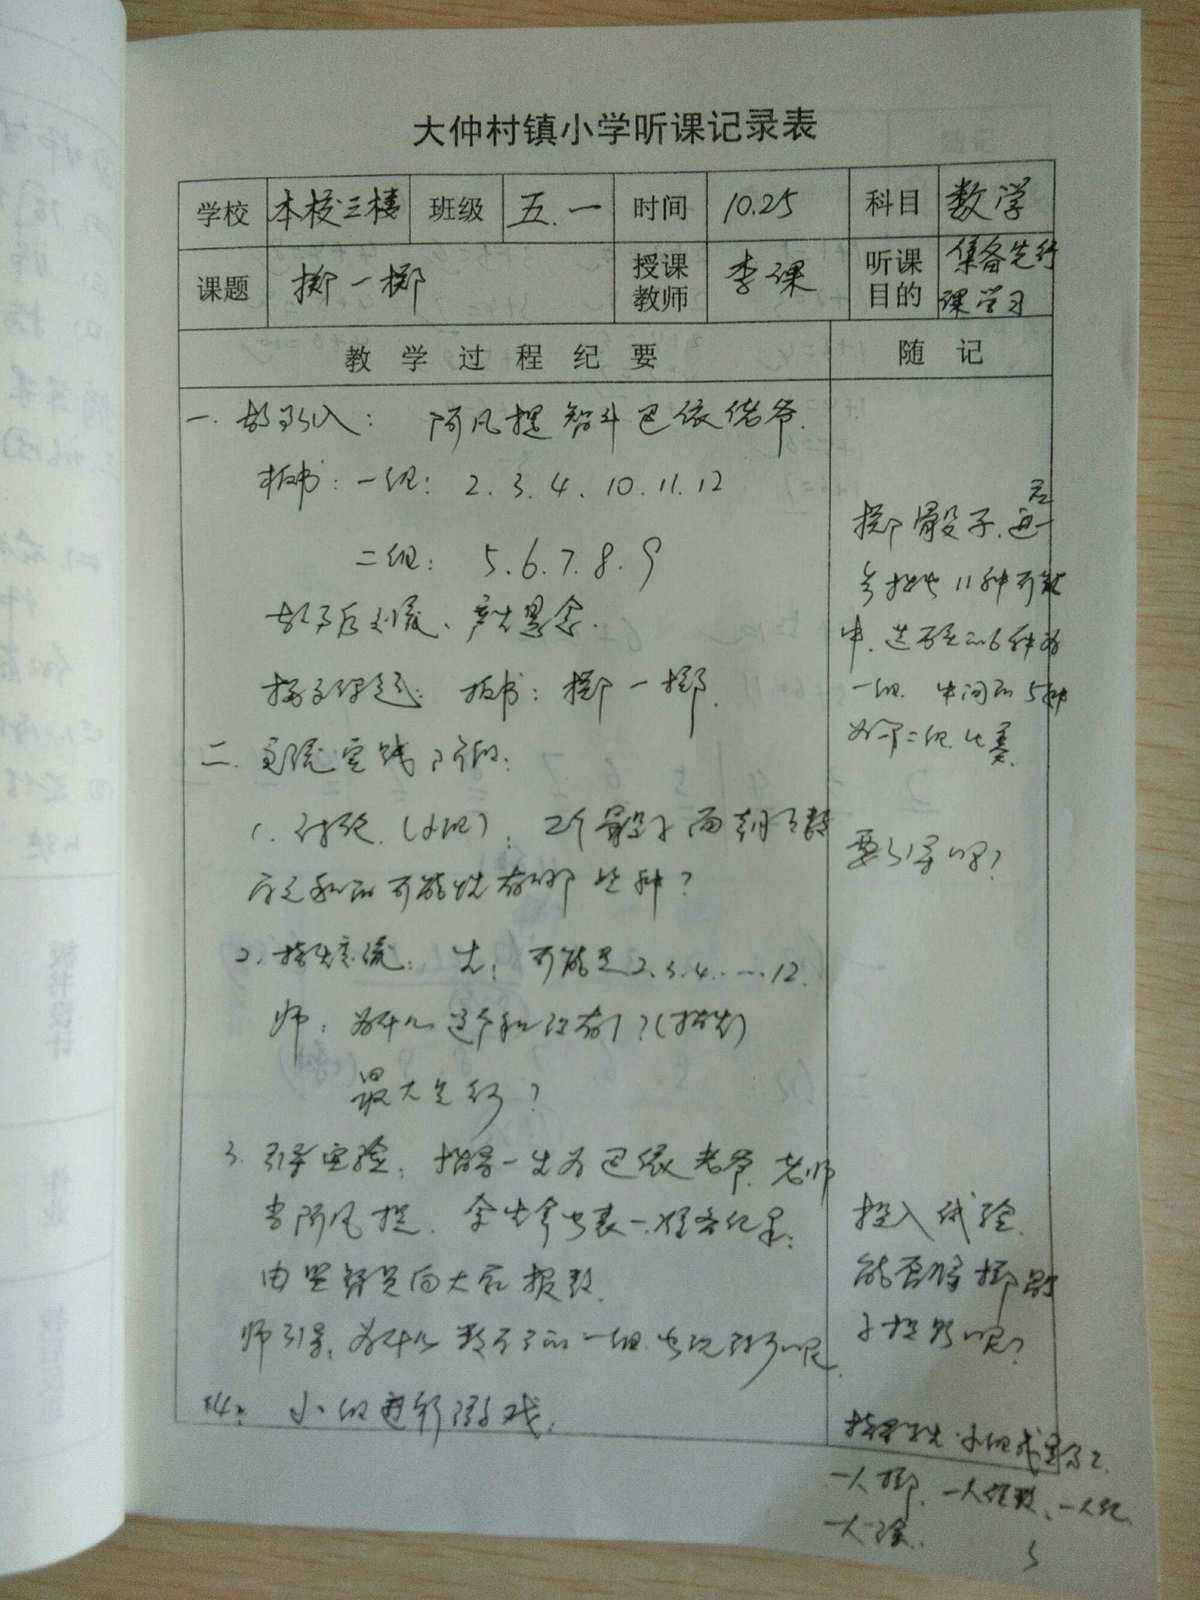 大仲村镇小学听课记录表
学校 本校三楼 班级 五.一 时间 10.25 科目 数学
课题 掷一掷 授课教师 李课 听课目的 集备先行课学习
教学过程纪要 随记
一. 故事引入： 阿凡提智斗巴依老爷.
板书：一组： 2.3.4.10.11.12
二组： 5.6.7.8.9
故事后 产生悬念.
揭示课题： 板书：掷一掷.
二. 实践阶段：
1. 讨论.（小组）： 2个骰子面朝上数
之和的可能性有哪些种？
2. 指生交流： 生：可能是2.3.4.….12.
师：为什么这个和没有1？（指生）
最大是几？
3. 引导实验： 指导一生为巴依老爷 老师
当阿凡提. 拿出表一准备纪录；
由 员向大家报数.
师引导：为什么 的一组
4： 小组进行游戏.
掷骰子.
11种可能
中. 选 的6种为
一组. 中间的5种
为第二组.比赛.
要引导吗？
投入试验.
能否将掷骰
子 呢？
指导学生.小组
一人掷. 一人 、一人记
一人